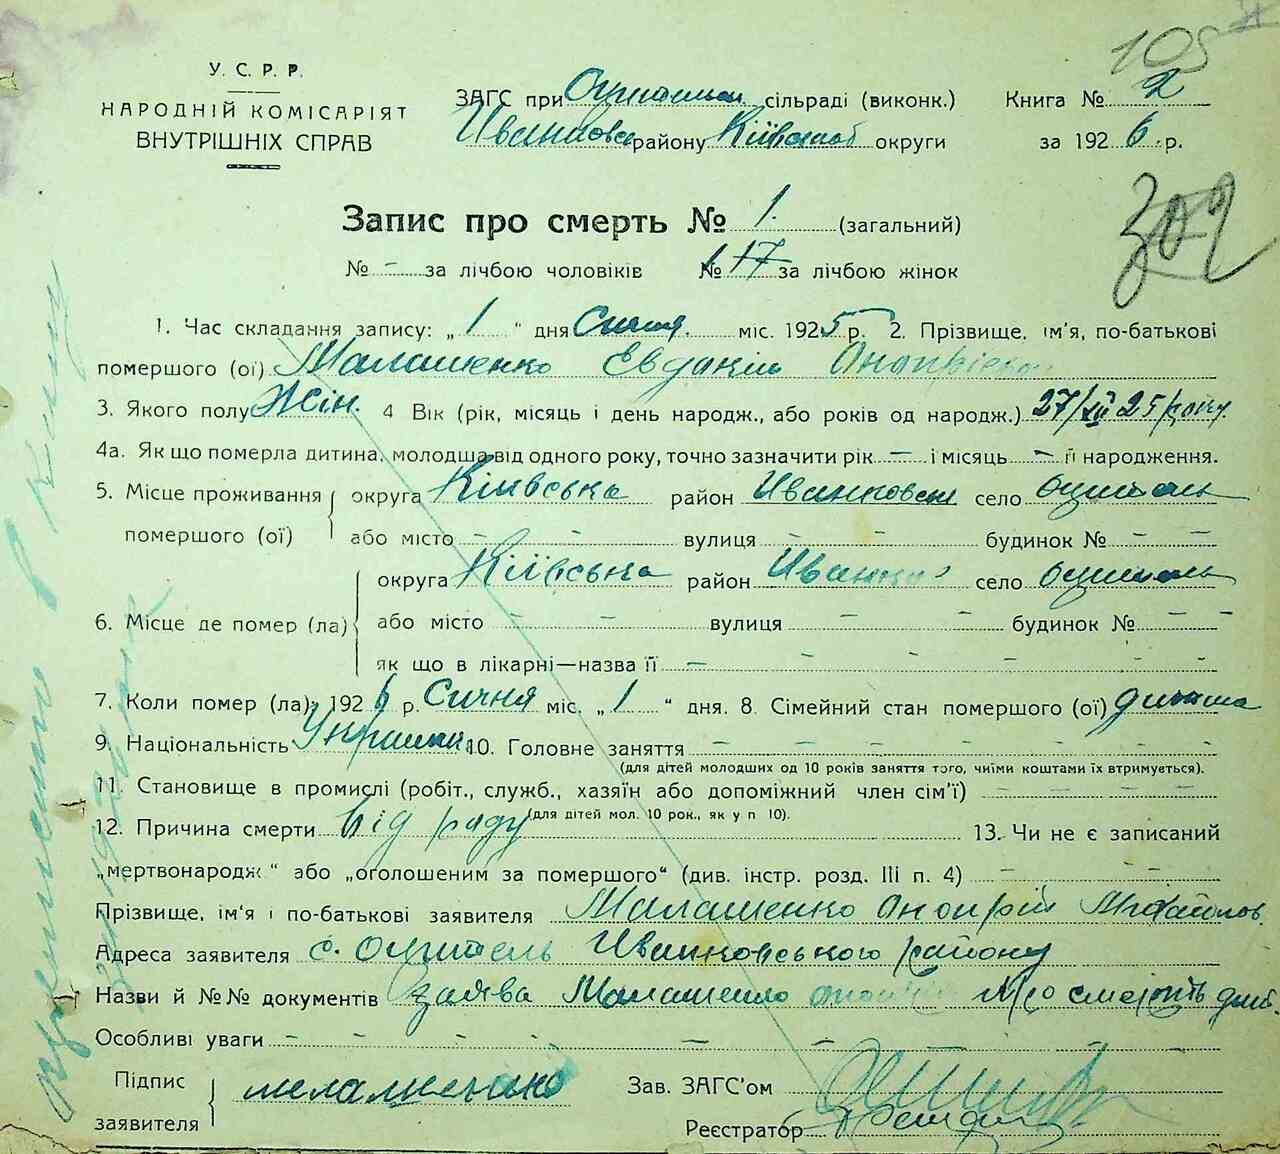 105
У. С. Р. Р.
НАРОДНІЙ КОМІСАРІЯТ
ВНУТРІШНІХ СПРАВ
ЗАГС при сільраді (виконк.) Книга № 2
району округи за 1926 р.
302
Запис про смерть № 1. (загальний)
№ - за лічбою чоловіків № 17 за лічбою жінок
1. Час складання запису: „ 1 “ дня Січня міс. 1925 р. 2. Прізвище, ім'я, по-батькові
помершого (ої) Малашенко Евдакія
3. Якого полу Жін. 4 Вік (рік, місяць і день народж., або років од народж.) 27/XII 25 року
4а. Як що померла дитина, молодша від одного року, точно зазначити рік - і місяць - її народження.
5. Місце проживання округа Київська район село
помершого (ої) або місто - - вулиця - - будинок № - -
округа Київська район село
6. Місце де помер (ла) або місто - - вулиця - - будинок № - -
як що в лікарні—назва її - - - - -
7. Коли помер (ла): 1926 р. Січня міс. „ 1 “ дня. 8. Сімейний стан помершого (ої) дитина
9. Національність 10. Головне заняття - - - - -
(для дітей молодших од 10 років заняття того, чиїми коштами їх втримується).
11. Становище в промислі (робіт., служб., хазяїн або допоміжний член сім'ї) - - -
(для дітей мол. 10 рок., як у п 10).
12. Причина смерти від роду 13. Чи не є записаний
„мертвонародж“ або „оголошеним за помершого“ (див. інстр. розд. III п. 4) - - -
Прізвище, ім'я і по-батькові заявителя Малашенко Онопрій
Адреса заявителя с. Иванковського району
Назви й №№ документів заява Малашенко про смерть дит.
Особливі уваги - - - - -
Підпис Зав. ЗАГС'ом
заявителя Реєстратор